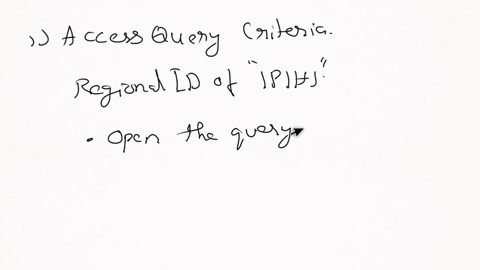 1,) Access Query Criteria.
Regional ID of "
• Open the query